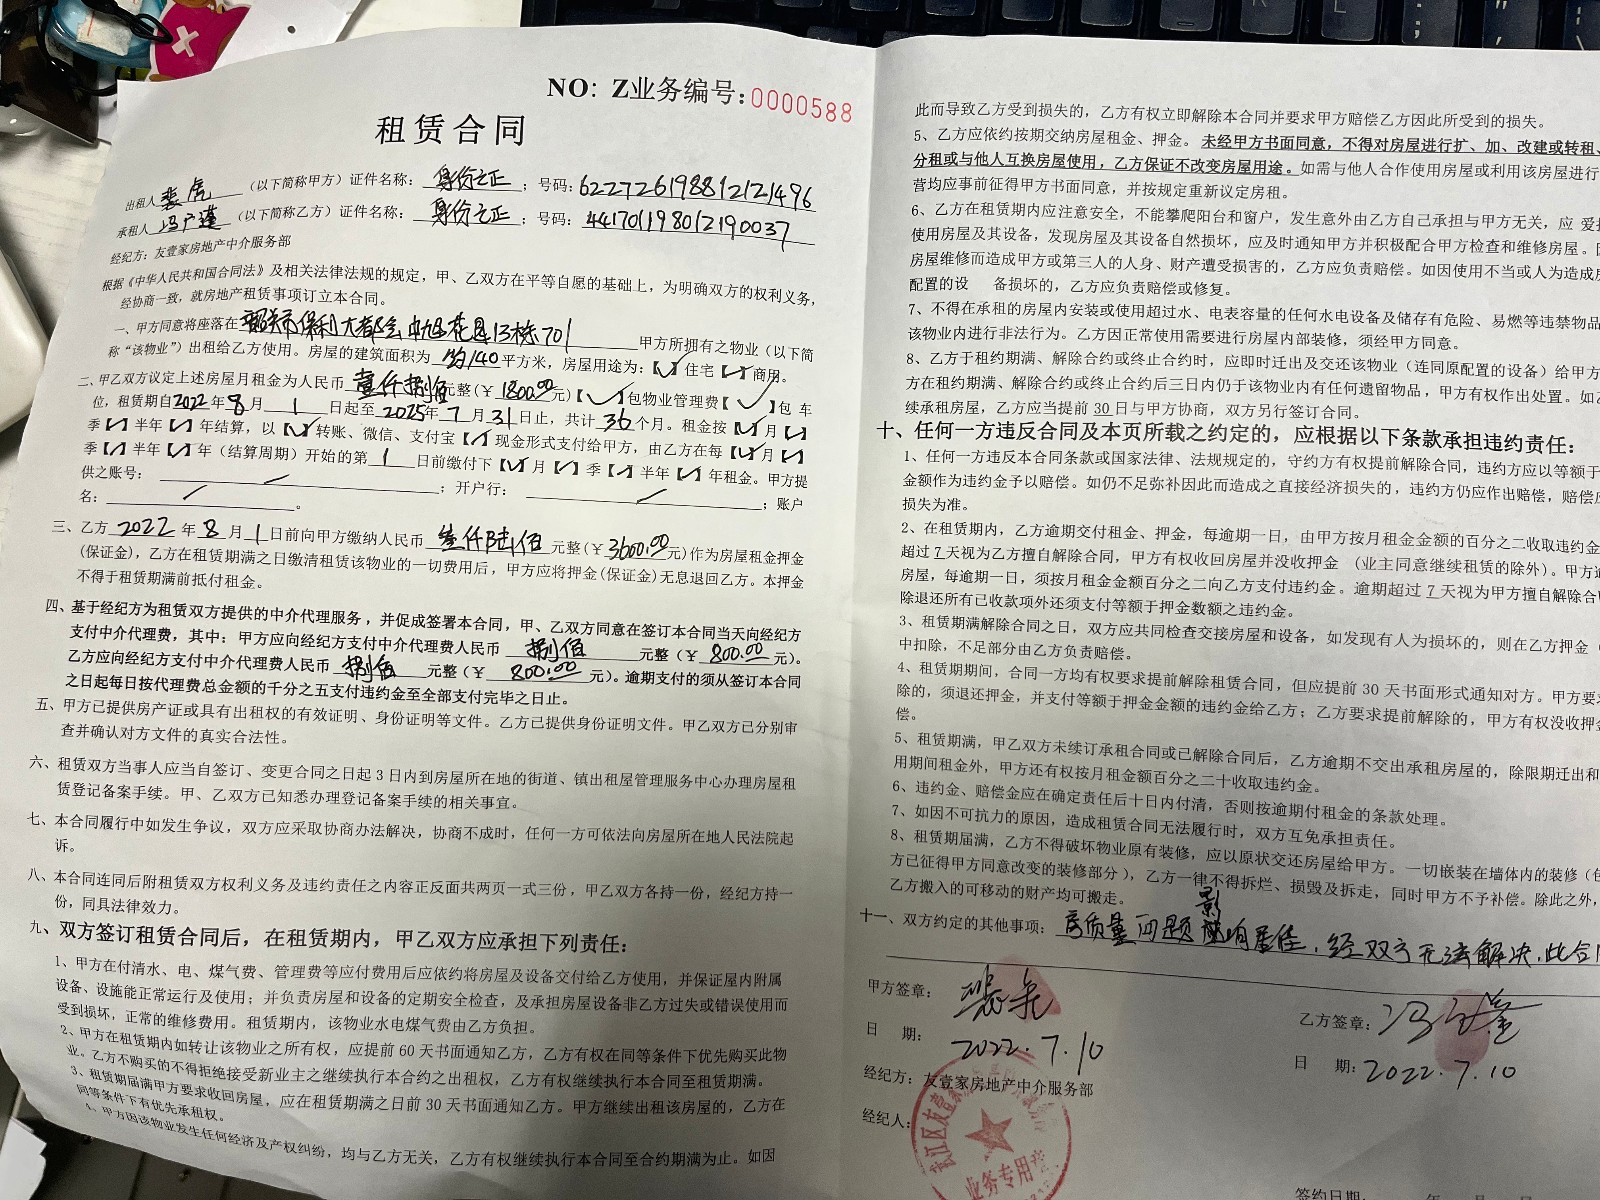 NO: Z业务编号:0000588
租赁合同
出租人 裴虎 (以下简称甲方) 证件名称: 身份之正 ; 号码: 622726198812121496
承租人 冯广谨 (以下简称乙方) 证件名称: 身份之正 ; 号码: 441701198012190037
经纪方: 友壹家房地产中介服务部
根据《中华人民共和国合同法》及相关法律法规的规定，甲、乙双方在平等自愿的基础上，为明确双方的权利义务，
经协商一致，就房地产租赁事项订立本合同。
一、甲方同意将座落在 韶关市保利大都会中旭花园13栋701 甲方所拥有之物业（以下简
称“该物业”）出租给乙方使用。房屋的建筑面积为 约140 平方米，房屋用途为：【✓】住宅【✓】商用。
二、甲乙双方议定上述房屋月租金为人民币 壹仟捌佰 元整(￥ 1800.00 元)【✓】包物业管理费【✓】包 车
位，租赁期自2022年8月 1 日起至 2025年 7 月 31 日止，共计 36 个月。租金按【✓】月【✓】
季【✓】半年【✓】年结算，以【✓】转账、微信、支付宝【✓】现金形式支付给甲方，由乙方在每【✓】月【✓】
季【✓】半年【✓】年（结算周期）开始的第 1 日前缴付下【✓】月【✓】季【✓】半年【✓】年租金。甲方提
供之账号： / ；开户行： / ；账户
名： / 。
三、乙方 2022 年 8 月 1 日前向甲方缴纳人民币 叁仟陆佰 元整(￥3600.00元)作为房屋租金押金
(保证金)，乙方在租赁期满之日缴清租赁该物业的一切费用后，甲方应将押金(保证金)无息退回乙方。本押金
不得于租赁期满前抵付租金。
四、基于经纪方为租赁双方提供的中介代理服务，并促成签署本合同，甲、乙双方同意在签订本合同当天向经纪方
支付中介代理费，其中：甲方应向经纪方支付中介代理费人民币 捌佰 元整（￥ 800.00 元）。
乙方应向经纪方支付中介代理费人民币 捌佰 元整（￥ 800.00 元）。逾期支付的须从签订本合同
之日起每日按代理费总金额的千分之五支付违约金至全部支付完毕之日止。
五、甲方已提供房产证或具有出租权的有效证明、身份证明等文件。乙方已提供身份证明文件。甲乙双方已分别审
查并确认对方文件的真实合法性。
六、租赁双方当事人应当自签订、变更合同之日起 3 日内到房屋所在地的街道、镇出租屋管理服务中心办理房屋租
赁登记备案手续。甲、乙双方已知悉办理登记备案手续的相关事宜。
七、本合同履行中如发生争议，双方应采取协商办法解决，协商不成时，任何一方可依法向房屋所在地人民法院起
诉。
八、本合同连同后附租赁双方权利义务及违约责任之内容正反面共两页一式三份，甲乙双方各持一份，经纪方持一
份，同具法律效力。
九、双方签订租赁合同后，在租赁期内，甲乙双方应承担下列责任：
1、甲方在付清水、电、煤气费、管理费等应付费用后应依约将房屋及设备交付给乙方使用，并保证屋内附属
设备、设施能正常运行及使用；并负责房屋和设备的定期安全检查，及承担房屋设备非乙方过失或错误使用而
受到损坏，正常的维修费用。租赁期内，该物业水电煤气费由乙方负担。
2、甲方在租赁期内如转让该物业之所有权，应提前 60 天书面通知乙方，乙方有权在同等条件下优先购买此物
业。乙方不购买的不得拒绝接受新业主之继续执行本合约之出租权，乙方有权继续执行本合同至租赁期满。
3、租赁期届满甲方要求收回房屋，应在租赁期满之日前 30 天书面通知乙方。甲方继续出租该房屋的，乙方在
同等条件下有优先承租权。
4、甲方因该物业发生任何经济及产权纠纷，均与乙方无关，乙方有权继续执行本合同至合约期满为止。如因
此而导致乙方受到损失的，乙方有权立即解除本合同并要求甲方赔偿乙方因此所受到的损失。
5、乙方应依约按期交纳房屋租金、押金。未经甲方书面同意，不得对房屋进行扩、加、改建或转租、
分租或与他人互换房屋使用，乙方保证不改变房屋用途。如需与他人合作使用房屋或利用该房屋进行
营均应事前征得甲方书面同意，并按规定重新议定房租。
6、乙方在租赁期内应注意安全，不能攀爬阳台和窗户，发生意外由乙方自己承担与甲方无关，应 爱
使用房屋及其设备，发现房屋及其设备自然损坏，应及时通知甲方并积极配合甲方检查和维修房屋。
房屋维修而造成甲方或第三人的人身、财产遭受损害的，乙方应负责赔偿。如因使用不当或人为造成
配置的设 备损坏的，乙方应负责赔偿或修复。
7、不得在承租的房屋内安装或使用超过水、电表容量的任何水电设备及储存有危险、易燃等违禁物品
该物业内进行非法行为。乙方因正常使用需要进行房屋内部装修，须经甲方同意。
8、乙方于租约期满、解除合约或终止合约时，应即时迁出及交还该物业（连同原配置的设备）给甲方
方在租约期满、解除合约或终止合约后三日内仍于该物业内有任何遗留物品，甲方有权作出处置。如
续承租房屋，乙方应当提前 30 日与甲方协商，双方另行签订合同。
十、任何一方违反合同及本页所载之约定的，应根据以下条款承担违约责任：
1、任何一方违反本合同条款或国家法律、法规规定的，守约方有权提前解除合同，违约方应以等额于
金额作为违约金予以赔偿。如仍不足弥补因此而造成之直接经济损失的，违约方仍应作出赔偿，赔偿
损失为准。
2、在租赁期内，乙方逾期交付租金、押金，每逾期一日，由甲方按月租金金额的百分之二收取违约金
超过 7 天视为乙方擅自解除合同，甲方有权收回房屋并没收押金 （业主同意继续租赁的除外）。甲方
房屋，每逾期一日，须按月租金金额百分之二向乙方支付违约金。逾期超过 7 天视为甲方擅自解除合
除退还所有已收款项外还须支付等额于押金数额之违约金。
3、租赁期满解除合同之日，双方应共同检查交接房屋和设备，如发现有人为损坏的，则在乙方押金
中扣除，不足部分由乙方负责赔偿。
4、租赁期期间，合同一方均有权要求提前解除租赁合同，但应提前 30 天书面形式通知对方。甲方要
除的，须退还押金，并支付等额于押金金额的违约金给乙方；乙方要求提前解除的，甲方有权没收押
偿。
5、租赁期满，甲乙双方未续订承租合同或已解除合同后，乙方逾期不交出承租房屋的，除限期迁出和
用期间租金外，甲方还有权按月租金额百分之二十收取违约金。
6、违约金、赔偿金应在确定责任后十日内付清，否则按逾期付租金的条款处理。
7、如因不可抗力的原因，造成租赁合同无法履行时，双方互免承担责任。
8、租赁期届满，乙方不得破坏物业原有装修，应以原状交还房屋给甲方。一切嵌装在墙体内的装修（
方已征得甲方同意改变的装修部分），乙方一律不得拆烂、损毁及拆走，同时甲方不予补偿。除此之外，
乙方搬入的可移动的财产均可搬走。
十一、双方约定的其他事项：房质量问题影响居住，经双方无法解决，此合
甲方签章：
日 期：2022.7.10
乙方签章：
日 期：2022.7.10
经纪方：友壹家房地产中介服务部
经纪人：
武江区友壹家房地产中介服务部
业务专用章
签约日期： 年 月 日